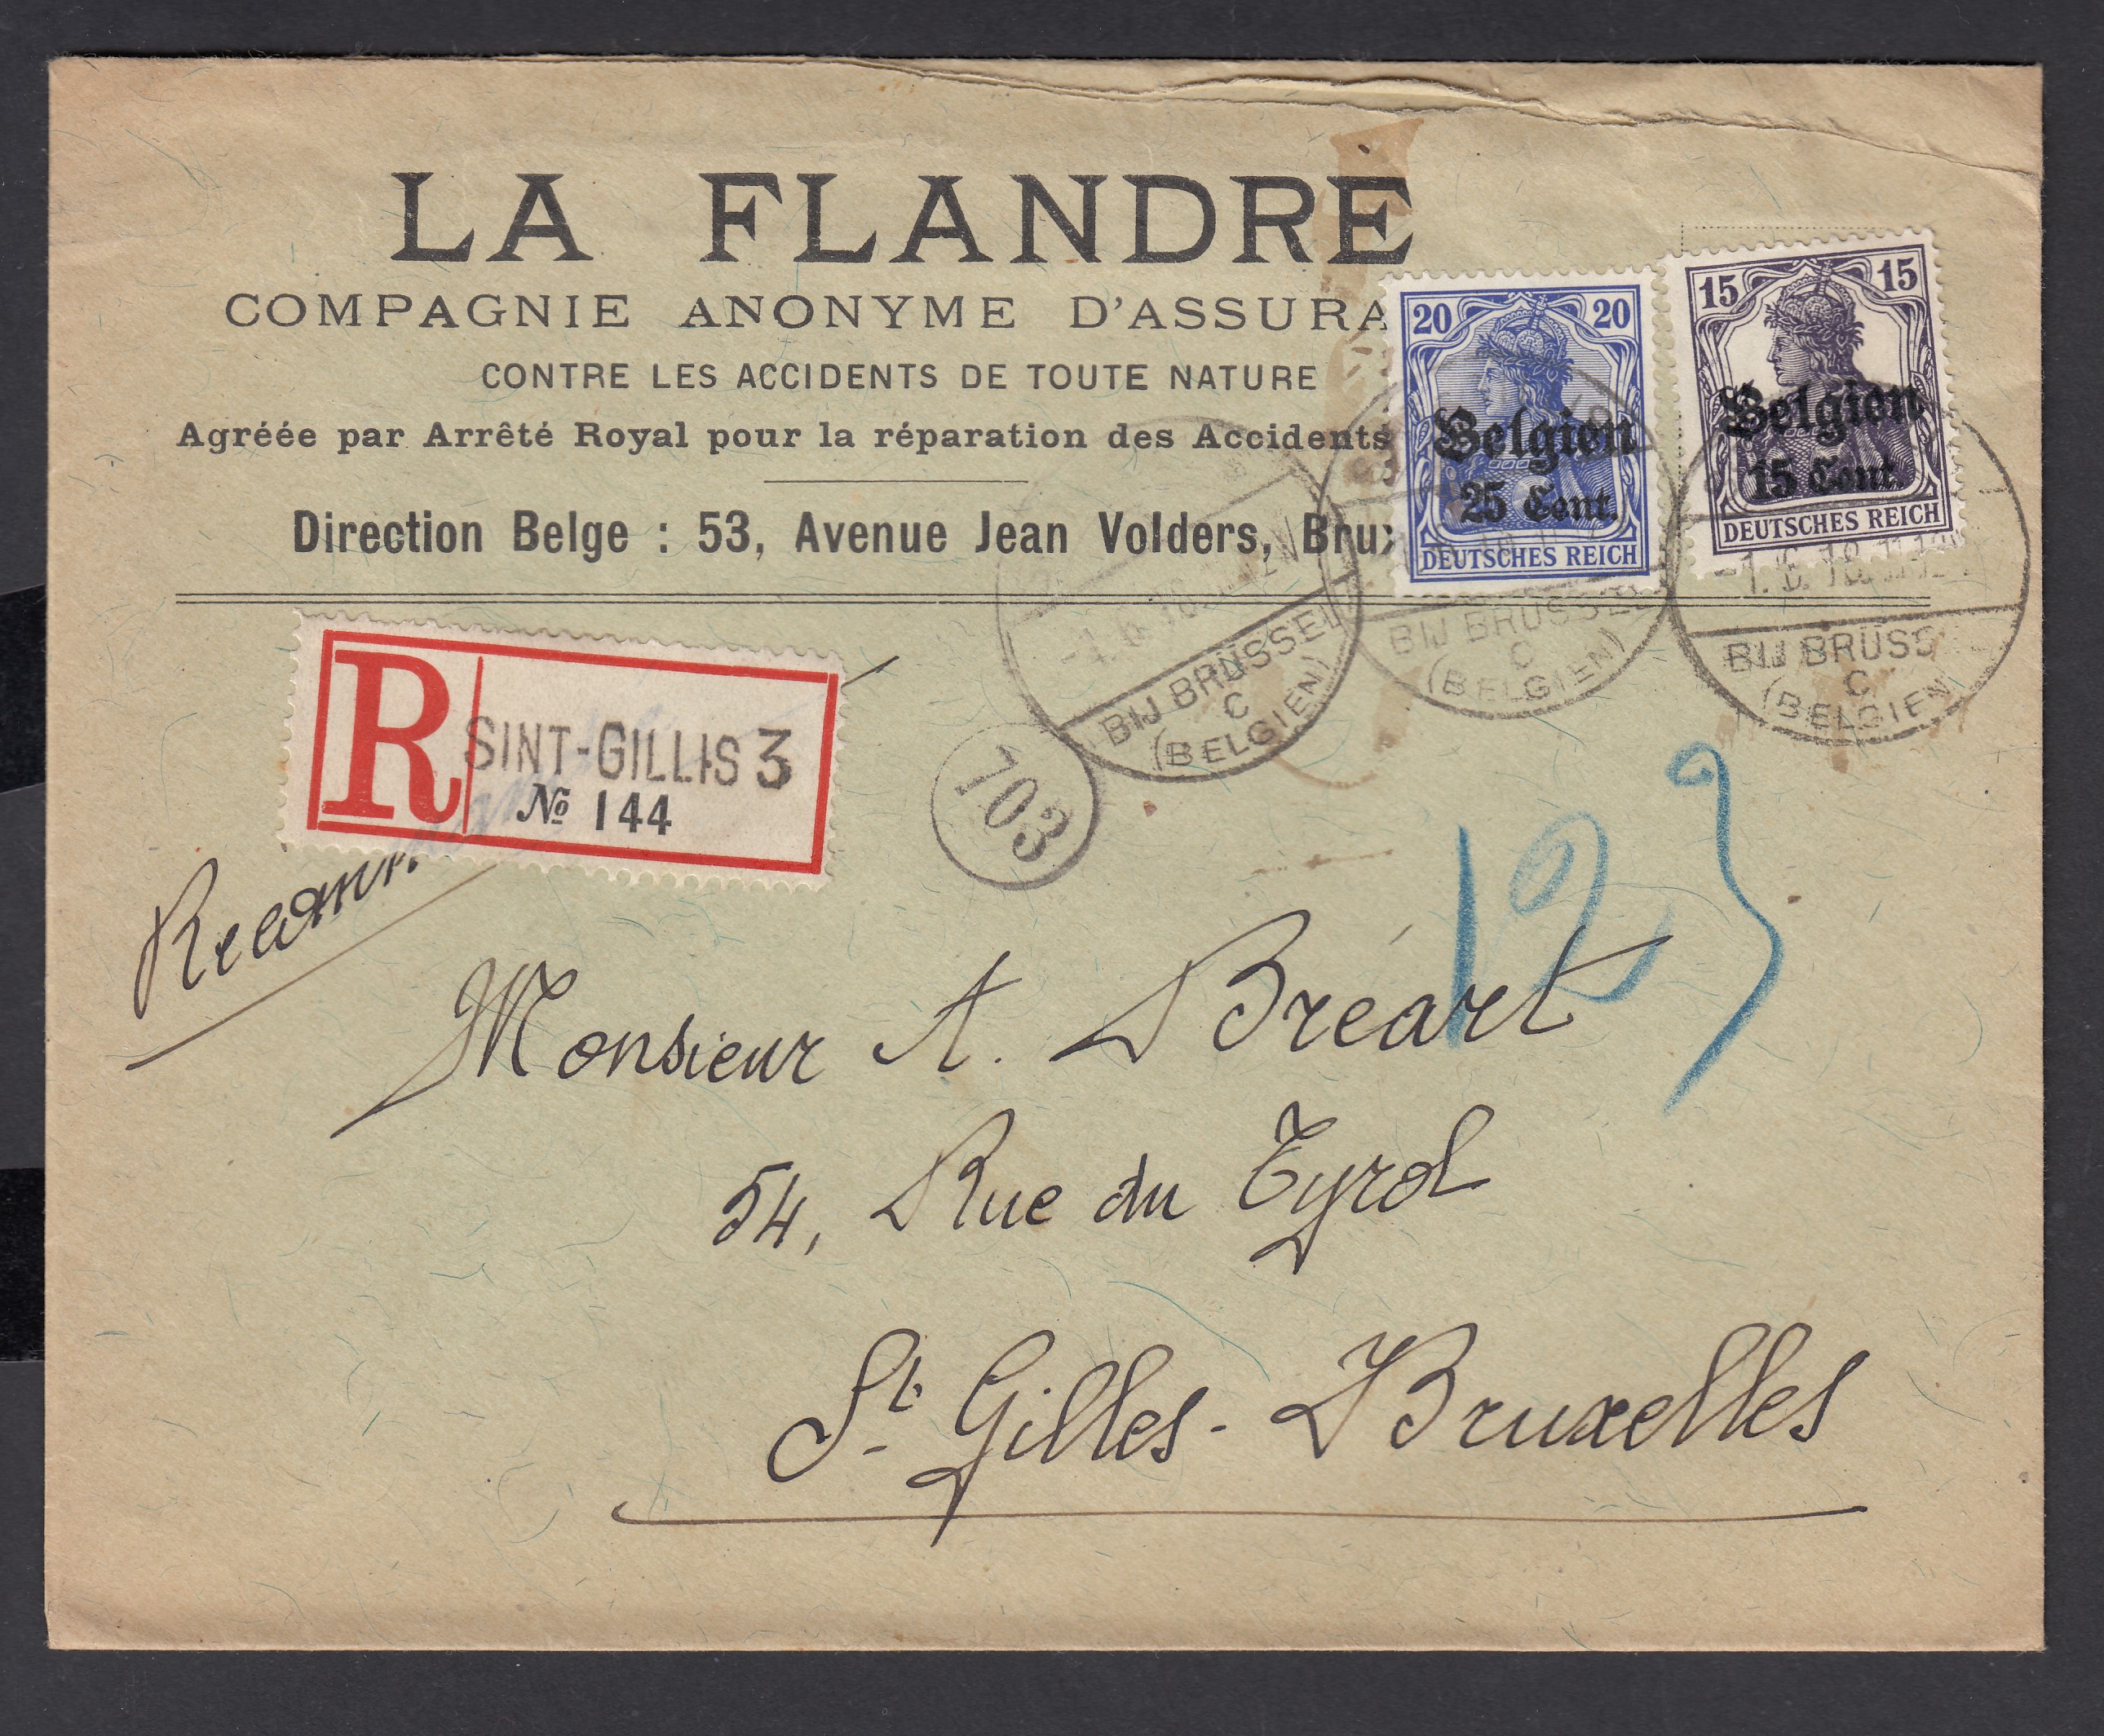 LA FLANDRE
COMPAGNIE ANONYME D'ASSURA
CONTRE LES ACCIDENTS DE TOUTE NATURE
Agréée par Arrêté Royal pour la réparation des Accidents
Direction Belge : 53, Avenue Jean Volders, Brux
20 20
Belgien
25 Cent.
DEUTSCHES REICH
15 15
Belgien
15 Cent.
DEUTSCHES REICH
BIJ BRÜSSEL
C
(BELGIEN)
BIJ BRÜSSEL
C
(BELGIEN)
-1.6.18. 11-12
BIJ BRÜSS
C
(BELGIEN
R
SINT-GILLIS 3
No 144
703
Recomm
123
Monsieur A. Bréart
54, Rue du Tyrol
St Gilles - Bruxelles